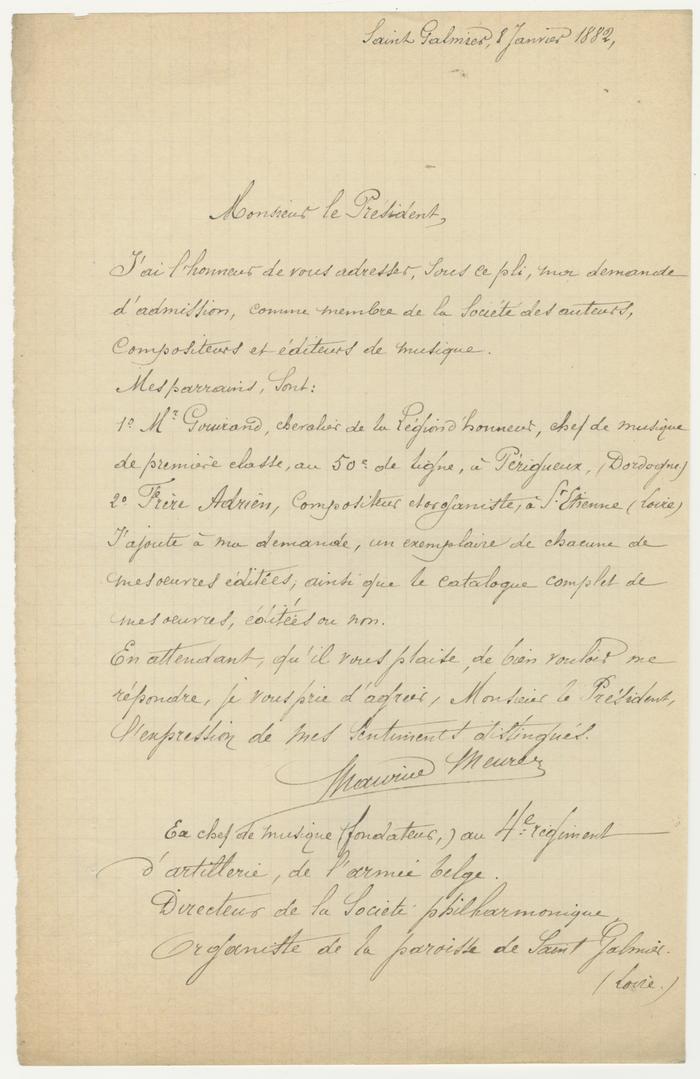 Saint Galmier, 8 Janvier 1882,
Monsieur le Président,
J'ai l'honneur de vous adresser, sous ce pli, ma demande
d'admission, comme membre de la Société des auteurs,
compositeurs et éditeurs de musique.
Mes parrains, sont:
1º Mr Gouirand, chevalier de la Légion d'honneur, chef de musique
de première classe, au 50e de ligne, à Périgueux, (Dordogne)
2º Frère Adrien, compositeur et organiste, à St Etienne (Loire)
J'ajoute à ma demande, un exemplaire de chacune de
mes oeuvres éditées, ainsi que le catalogue complet de
mes oeuvres, éditées ou non.
En attendant, qu'il vous plaise, de bien vouloir me
répondre, je vous prie d'agréer, Monsieur le Président,
l'expression de mes sentiments distingués.
Maurice
Ex chef de musique (fondateur,) au 4e régiment
d'artillerie, de l'armée belge.
Directeur de la Société philharmonique,
Organiste de la paroisse de Saint Galmier.
(Loire.)